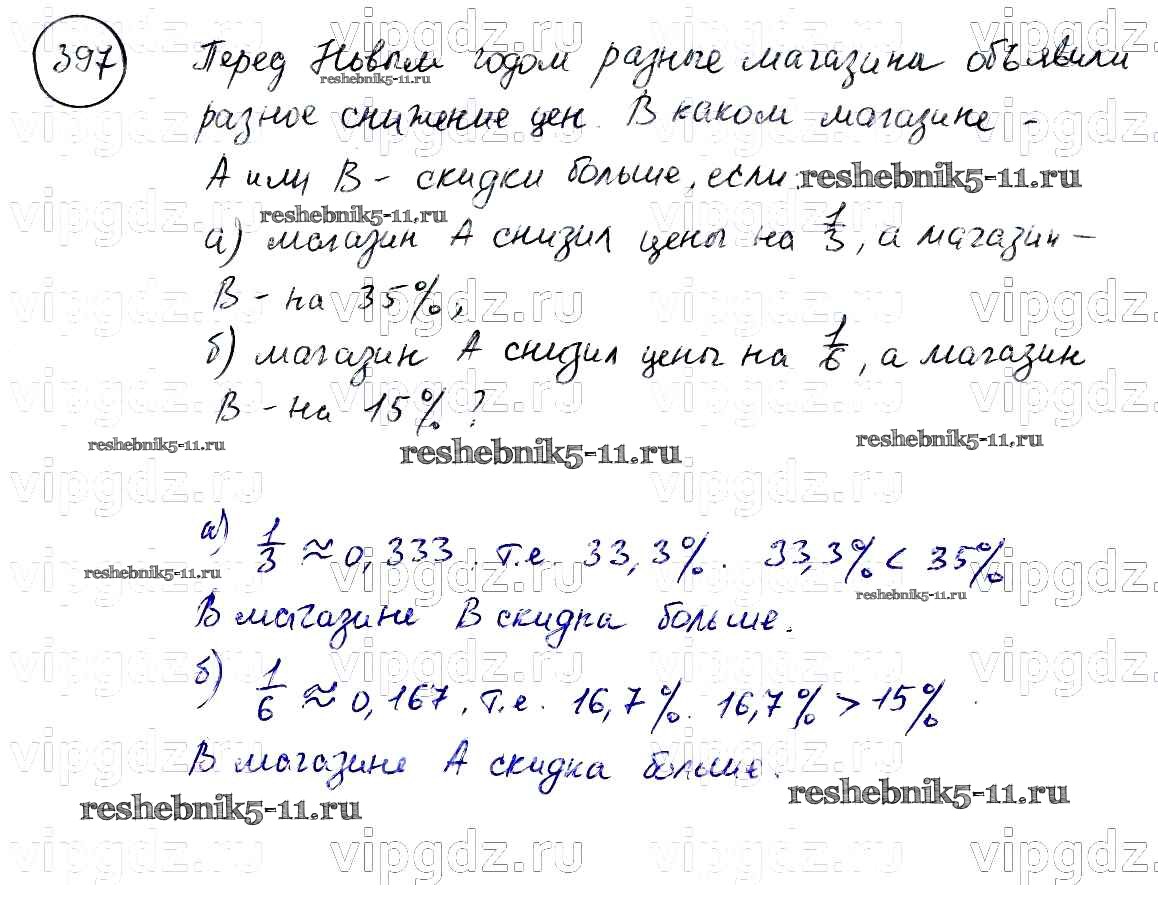 397 Перед Новым годом разные магазина объявили
разное снижение цен. В каком магазине -
А или В - скидки больше, если:
а) магазин А снизил цены на 1/3, а магазин -
В - на 35%,
б) магазин А снизил цены на 1/6, а магазин
В - на 15%?
а) 1/3 ≈ 0,333. т.е. 33,3%. 33,3% < 35%
В магазине В скидка больше.
б) 1/6 ≈ 0,167. т.е. 16,7%. 16,7% > 15%.
В магазине А скидка больше.
reshebnik5-11.ru
vipgdz.ru